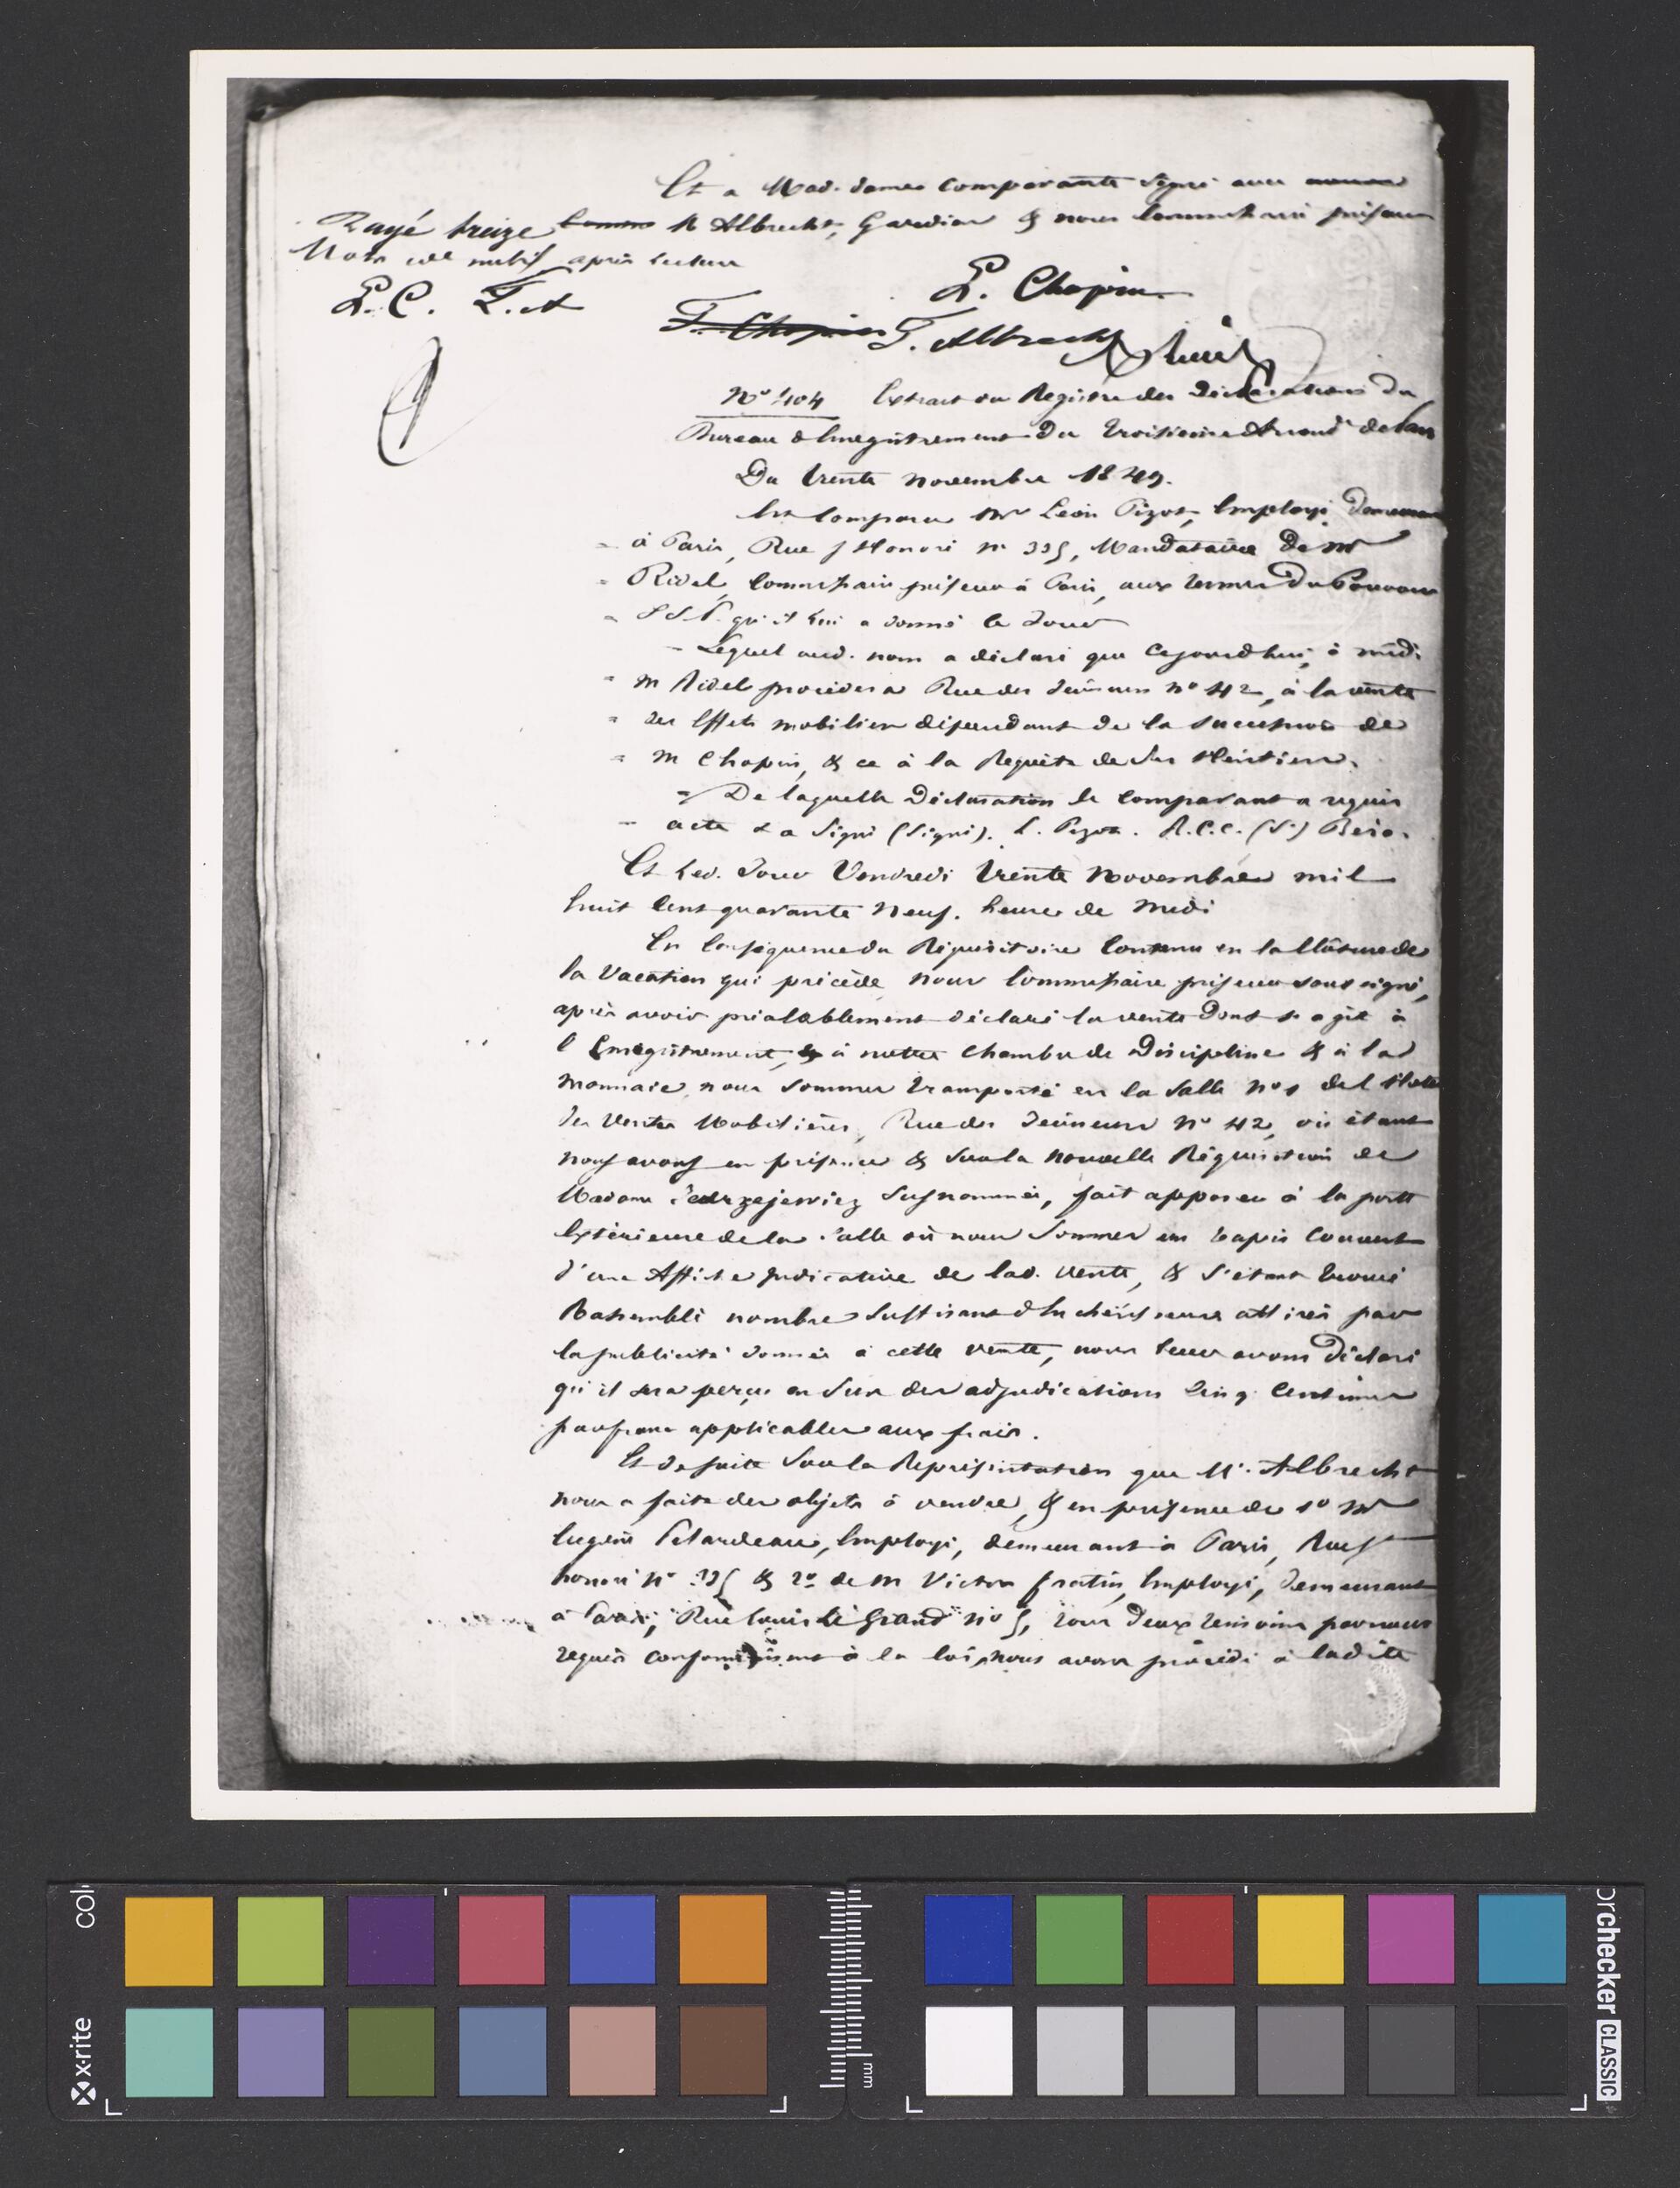 Et a Mad. dames Comparante Signé avec
Rayé treize M Albrecht, Gardien & nous Commissaire priseur
Mots nuls après lecture
L. C. T. A
L. Chopin
T. Albrecht Ridel
N° 404 Extrait du Registre des Déclarations du
Bureau d'Enregistrement du troisieme Arrond.t de
Du trente novembre 1849.
Est Comparu Mr Léon Pizot, Employé, demeurant
à Paris, Rue St Honoré n° 335, Mandataire de Mr
Ridel, Commissaire priseur à Paris, aux termes du Pouvoir
S.S.P. qu'il lui a donné le Jour
Lequel aud. nom a déclaré que Cejourd'hui, à midi
M Ridel procédera Rue des Jeûneurs n° 42, à la vente
des Effets mobiliers dépendant de la succession de
M Chopin, & ce à la Requête de Ses Héritiers.
De laquelle Déclaration le Comparant a requis
acte & a Signé (Signé). L. Pizot. R.C.C. (S.)
Et Led. Jour Vendredi trente Novembre mil
huit Cent quarante Neuf. heure de Midi
En Conséquence du Réquisitoire Contenu en la Clôture de
la Vacation qui précède, nous Commissaire priseur soussigné,
après avoir préalablement déclaré la vente dont s'agit à
l'Enregistrement, à notre Chambre de Discipline & à la
Monnaie, nous sommes transporté en la Salle n° 1 de l'Hôtel
des Ventes Mobilières, Rue des Jeûneurs N° 42, où étant
nous avons en présence & sur la Nouvelle Réquisition de
Madame Jedrzejewicz Susnommée, fait apposer à la porte
Extérieure de la Salle où nous Sommes un tapis Couvert
d'une Affiche Indicative de lad. Vente, & s'étant trouvé
Rassemblé nombre Suffisant d'Enchérisseurs attirés par
la publicité donnée à cette vente, nous leur avons Déclaré
qu'il sera perçu en Sus des adjudications Cinq Centimes
par franc applicables aux frais.
Et de suite Sur la Représentation que Mr. Albrecht
nous a faite des objets à vendre, & en présence de 1° Mr
Eugène Petardeau, Employé, demeurant à Paris, Rue St
honoré N° 335 & 2° de M Victor fratin, Employé, demeurant
à Paris, Rue Louis Le Grand N° 5, tous deux témoins par nous
requis conformément à la loi, nous avons procédé à ladite